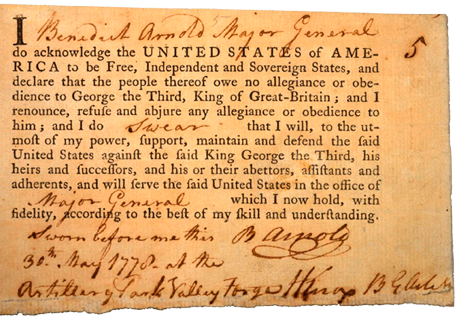 I Benedict Arnold Major General
5
do acknowledge the UNITED STATES of AME-
RICA to be Free, Independent and Sovereign States, and
declare that the people thereof owe no allegiance or obe-
dience to George the Third, King of Great-Britain; and I
renounce, refuse and abjure any allegiance or obedience to
him; and I do Swear that I will, to the ut-
most of my power, support, maintain and defend the said
United States against the said King George the Third, his
heirs and successors, and his or their abettors, assistants and
adherents, and will serve the said United States in the office of
Major General which I now hold, with
fidelity, according to the best of my skill and understanding.
Sworn before me this B Arnold
30th May 1778 at the
Artillery Park Valley Forge HKnox B G